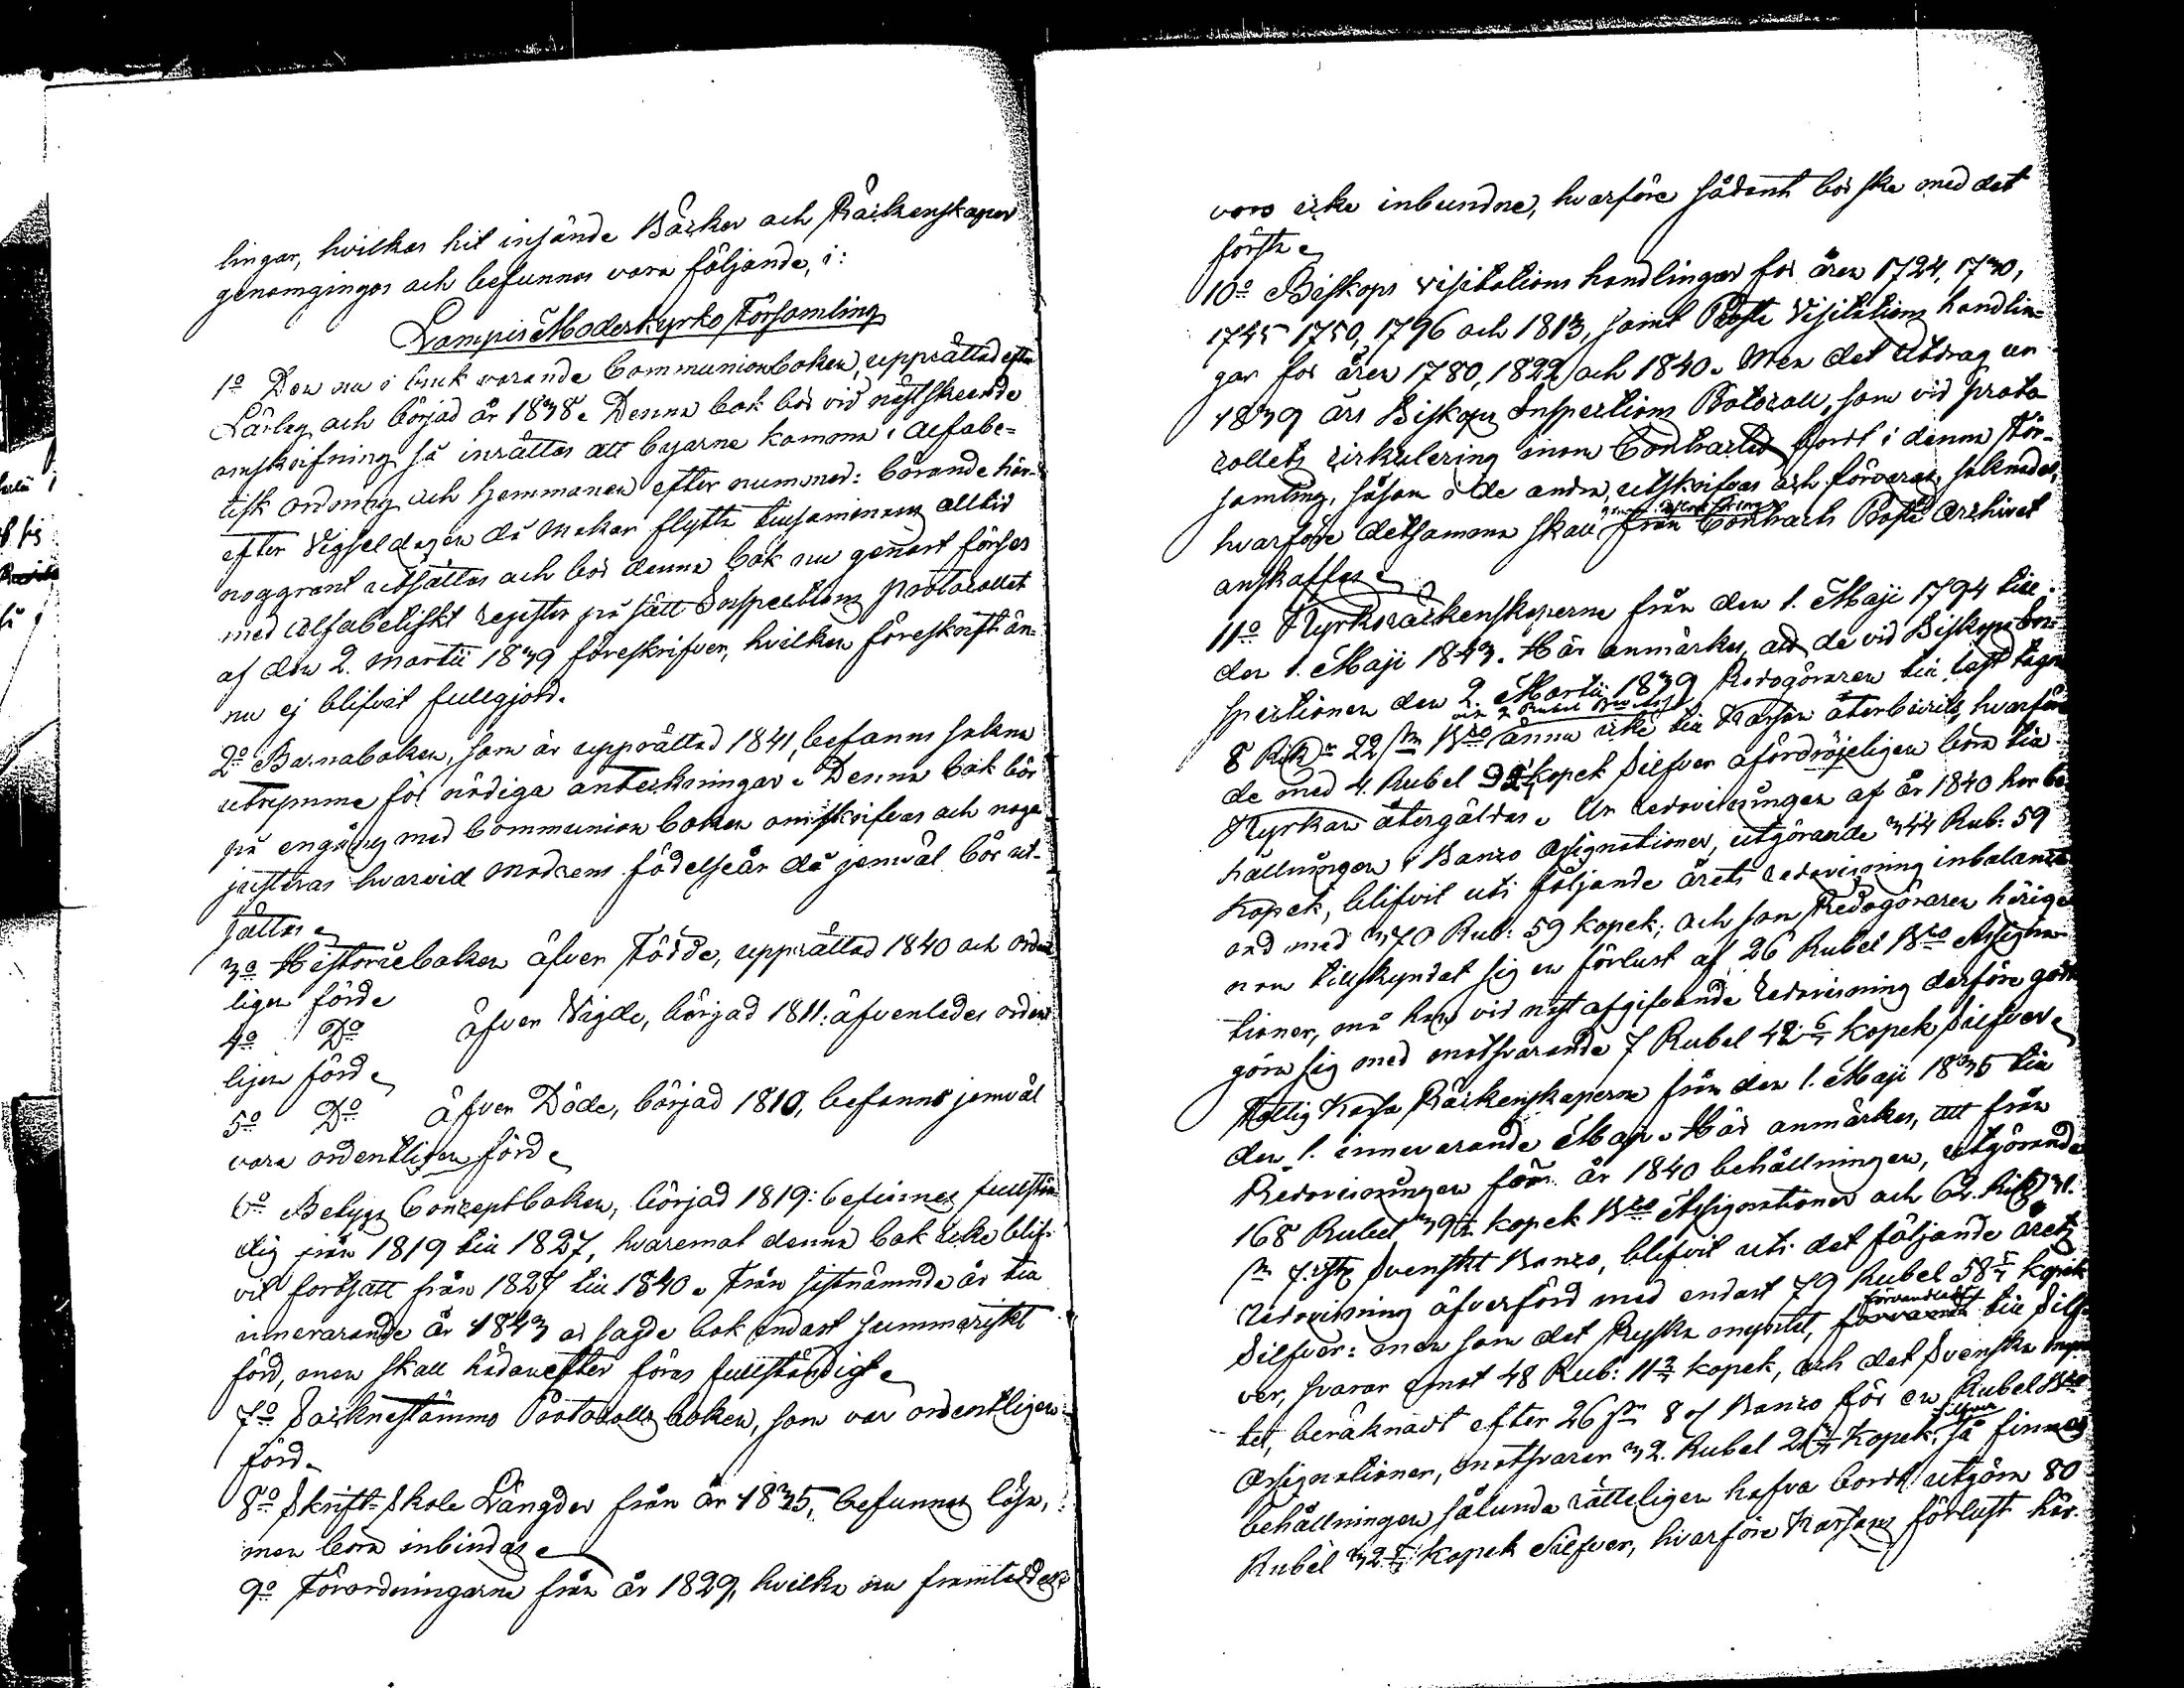 lingar, hvilkas hit insände Böcker och Räckenskaper
genomgingos och befunnos vara följande, i:
Lampis Moderkyrko Församling
1o Den nu i bruk varande Communionboken, upprättad efter
Lärlag och börjad år 1838. Denna bok bör vid nästskeende
omskrifning så inrättas att byarne komma i alfabe-
tisk ordning och hemmanen efter nummer: börande här-
efter Vigseldagen då makar flytta tillsammans alltid
noggrant utsättas och bör denna bok nu genast förses
med alfabetiskt register på sätt Inspections protocollet
af den 2. Martii 1839 föreskrifver, hvilken föreskrift än-
nu ej blifvit fullgjord.
2o Barnaboken, som är upprättad 1841, befanns sakna
utrymme för nödiga anteckningar. Denna bok bör
på engång med Communion boken omskrifvas och noga
justeras hvarvid modrens födelseår då jemväl bör ut-
sättas.
3o Historieboken öfver Födde, upprättad 1840 och ordent-
ligen förd.
4o Do öfver Vigde, börjad 1811: äfvenledes ordent-
ligen förd.
5o Do öfver Döde, börjad 1810, befanns jemväl
vara ordentligen förd.
6o Betygs Conceptboken, börjad 1819: befinnes fullstän-
dig från 1819 till 1827, hvaremot denna bok icke blif-
vit fortsatt från 1827 till 1840. Från sistnämnde år till
innevarande år 1843 är sagde bok endast summariskt
förd, men skall hädanefter föras fullständigt.
7o Socknestämmo Protocolls boken, som var ordentligen
förd.
8o Skrift-Skole Längder från år 1835, befunnos lösa,
men böra inbindas.
9o Förordningarne från år 1829, hvilka nu framteddes
voro icke inbundne, hvarföre sådant bör ske med det
första.
10o Biskops visitations handlingar för åren 1724, 1730,
1745 1750, 1796 och 1813, samt Prosts Visitations handlin-
gar för åren 1780, 1822 och 1840. Men det utdrag ur
1839 års Biskops Inspections Protocoll, som vid proto-
collets cirkulering inom Contractet bordt i denna För-
samling, såsom i de andra, utskrifvas och förvaras, saknades,
hvarföre detsamma skall från Contracts Prosts Archivet
anskaffas.
11o Kyrkoräckenskaperne från den 1. Maji 1794 till
den 1. Maji 1843. Här anmärkes, att de vid Biskops In-
spectionen den 2. Martii 1839 Redogöraren till last tagne
8 Rikdr 22 sk Bco ännu icke till Kassan återburits, hvarföre
de med 4. Rubel kopek Silfver ofördröjeligen böra till
Kyrkan återgäldas. Ur redovisningen af år 1840 har be-
hållningen i Banco Assignationer, utgörande 344 Rub: 59
Kopek, blifvit uti följande årets redovisning inbalance-
rad med 370 Rub: 59 kopek; och som Redogöraren härige-
nom tillskyndat sig en förlust af 26 Rubel Bco Assigna-
tioner, må han vid nästafgifvande redovisning derföre godt-
göra sig med motsvarande 7 Rubel 42 6/7 kopek Silfver.
Fattig Kassa Räckenskaperne från den 1. Maji 1835 till
den 1. innevarande Maji. Här anmärkes, att från
Redovisningen för år 1840 behållningen, utgörande
168 Rubel 39 1/2 kopek Bco Assignationer och 62. Rikd 31.
sk 7. rst. Svenskt Banco, blifvit uti det följande årets
redovisning öfverförd med endast 79 Rubel 58 5/7 kopek
Silfver: men som det Ryska myntet, förvandladt till Silf-
ver, svarar emot 48 Rub: 11 3/7 kopek, och det Svenska myn-
tet, beräknadt efter 26 sk 8 rst Banco för en Rubel Bco
Assignationer, motsvarar 32. Rubel 21 Kopek silfver, så finnes
behållningen sålunda rätteligen hafva bordt utgöra 80
Rubel 32 kopek Silfver, hvarföre Kassans förlust här-